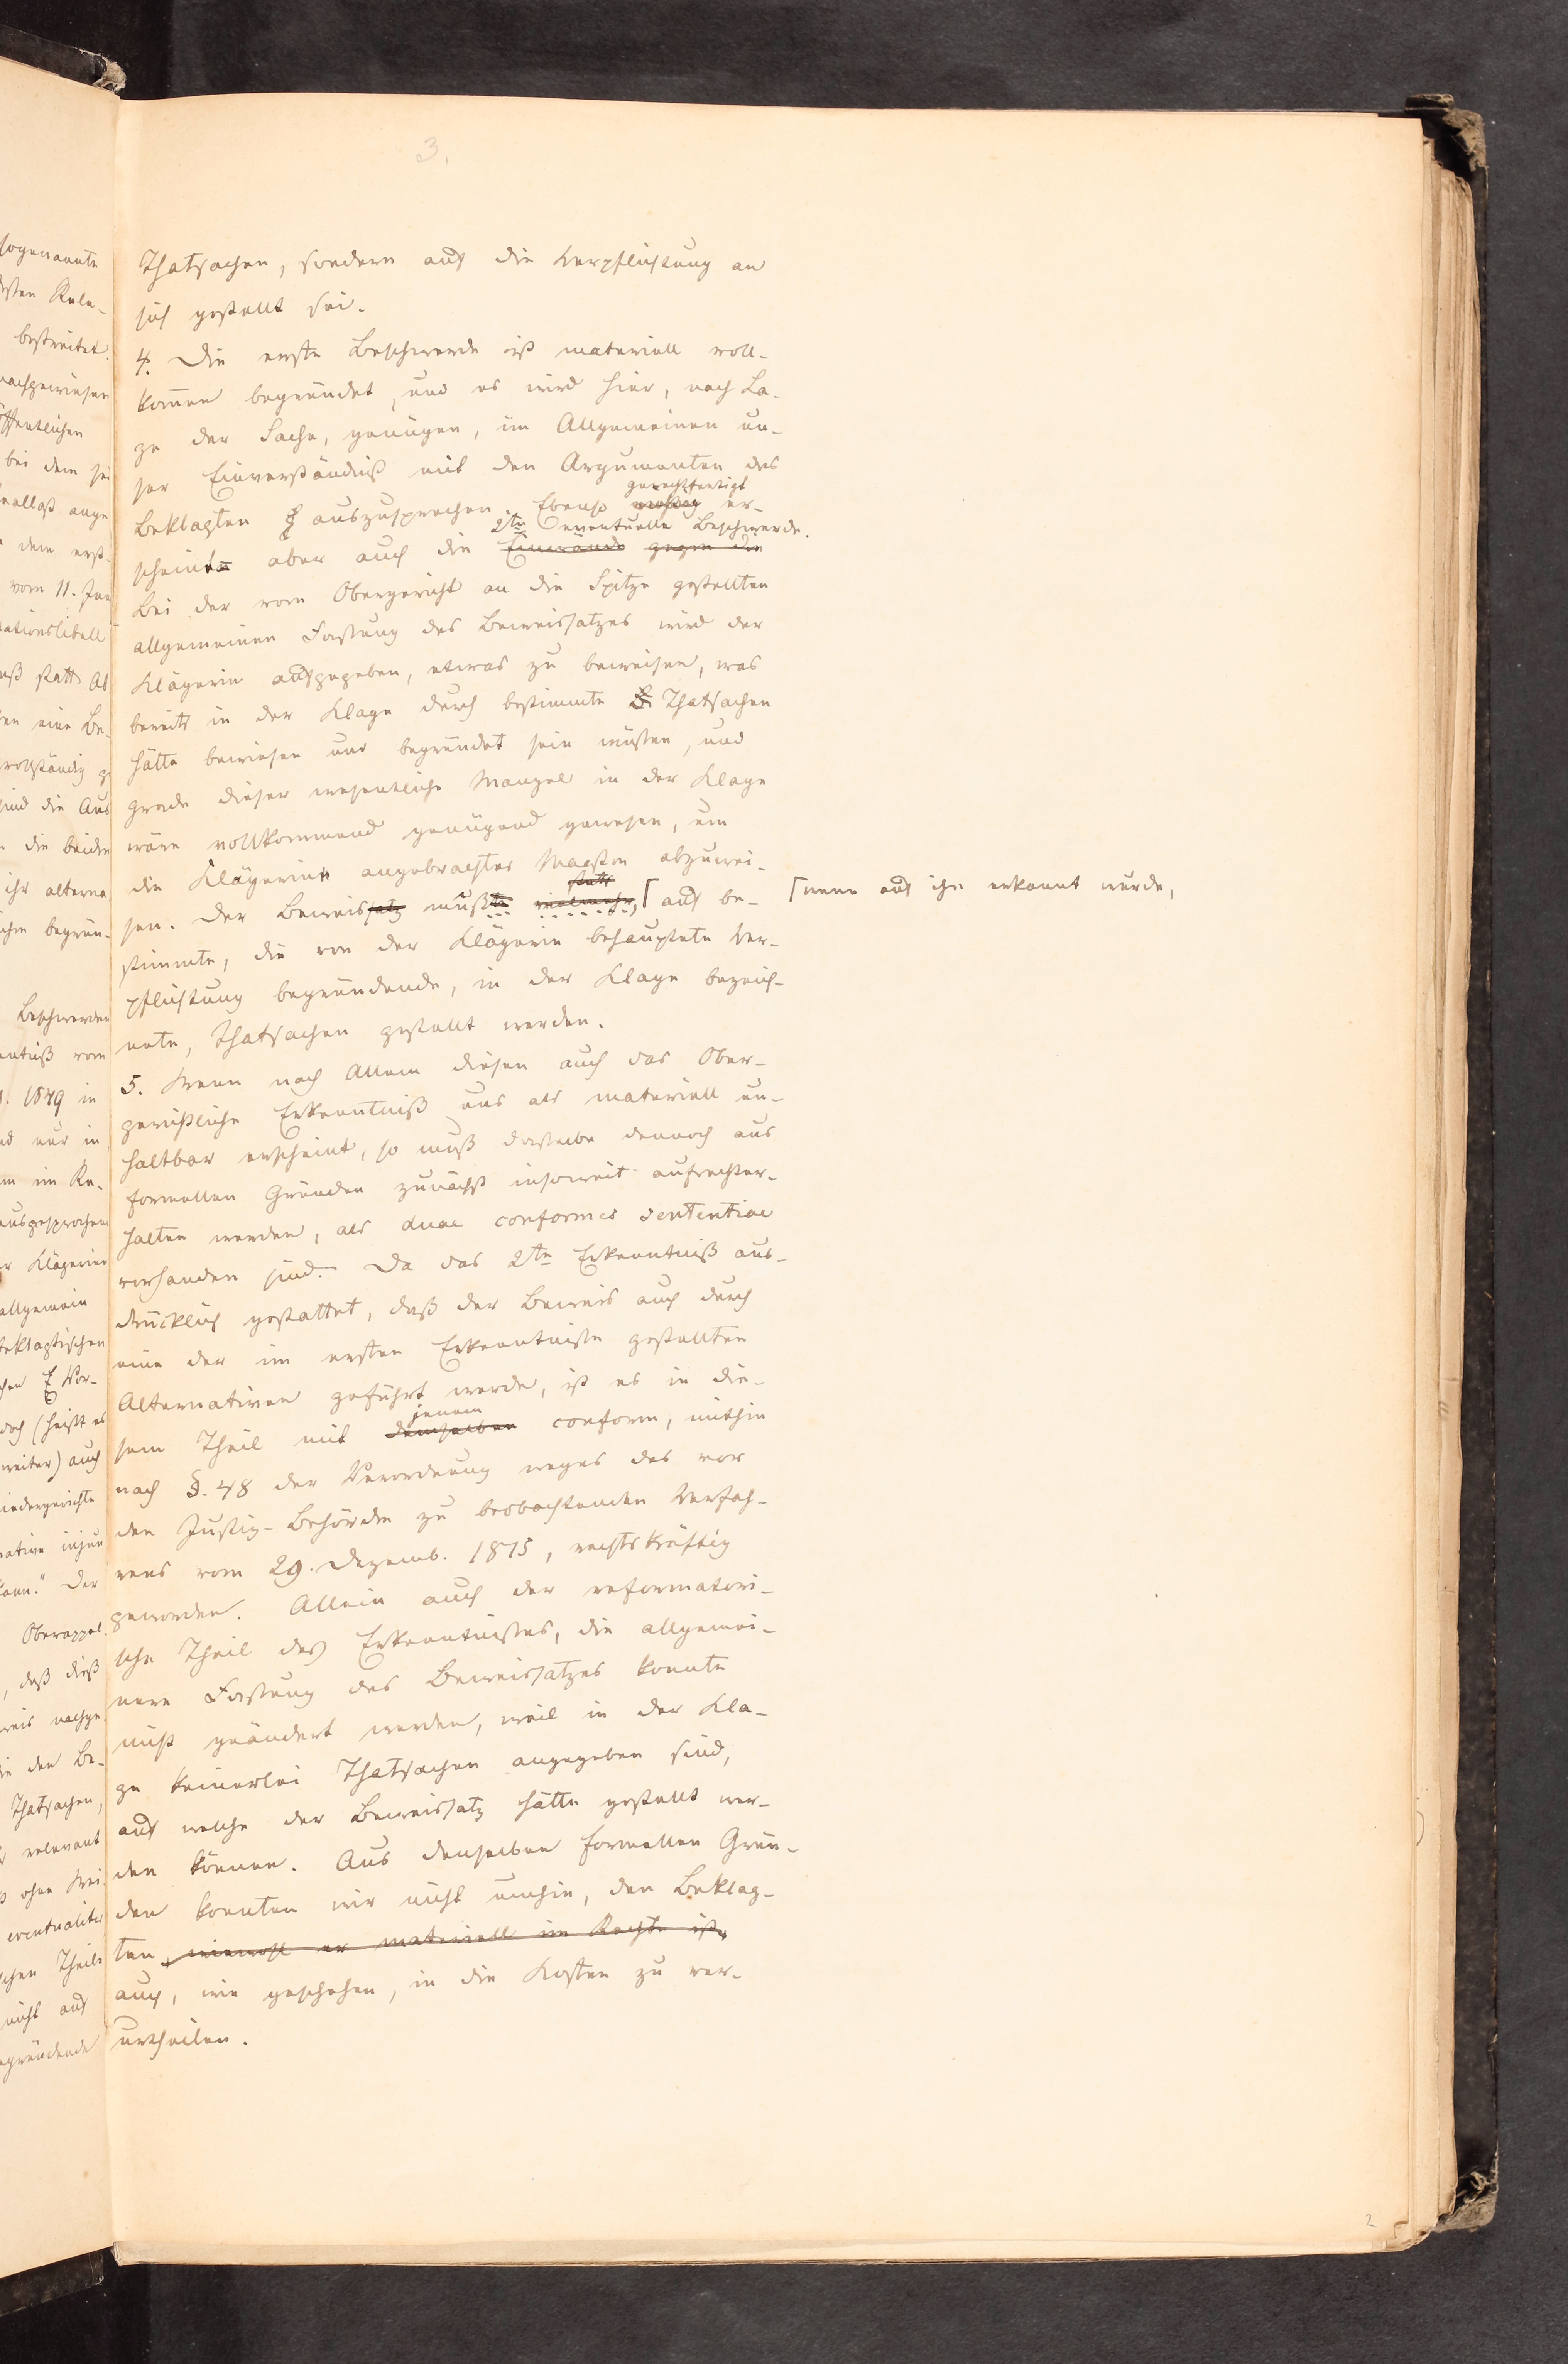 3.
Thatsachen, sondern auf die Verpflichtung an
sich gestellt sei.
4. Die erste Beschwerde ist materiell voll-
kommen begründet, und es wird hier, nach La-
ge der Sache, genügen, im Allgemeinen un-
ser Einverständniß mit den Argumenten des
gerechtfertigt
Beklagten auszusprechen. Ebenso er-
2te eventuelle Beschwerde.
scheint aber auch die Einwände gegen die
Bei der vom Obergericht an die Spitze gestellten
allgemeinen Fassung des Beweissatzes wird der
Klägerin aufgegeben, etwas zu beweisen, was
bereits in der Klage durch bestimmte Thatsachen
hätte bewiesen und begründet sein müssen, und
grade dieser wesentliche Mangel in der Klage
wäre vollkommend genügend gewesen, um
die Klägerin angebrachter Maaßen abzuwei-
statt
sen. Der Beweissatz mußte vielmehr, ⌈ auf be- ⌈ wenn auf ihn erkannt wurde,
stimmte, die von der Klägerin behauptete Ver-
pflichtung begründende, in der Klage bezeich-
nete, Thatsachen gestellt werden.
5. Wenn nach Allem diesen auch das Ober-
gerichtliche Erkenntniß uns als materiell un-
haltbar erscheint, so muß dasselbe dennoch aus
formellen Gründen zunächst insoweit aufrechter-
halten werden, als duae conformes sententiae
vorhanden sind. Da das 2te Erkenntniß aus-
drücklich gestattet, daß der Beweis auch durch
eine der im ersten Erkenntnisse gestellten
Alternativen geführt werde, ist es in die-
jenem
sem Theil mit demselben conform, mithin
nach §. 48 der Verordnung wegen des vor
den Justiz-Behörden zu beobachtenden Verfah-
rens vom 29. Dezemb. 1815, rechtskräftig
geworden. Allein auch der reformatori-
sche Theil des Erkenntnisses, die allgemei-
nere Fassung des Beweissatzes konnte
nicht geändert werden, weil in der Kla-
ge keinerlei Thatsachen angegeben sind,
auf welche der Beweissatz hätte gestellt wer-
den können. Aus denselben formellen Grün-
den konnten wir nicht umhin, den Beklag-
ten, wiewohl er materiell im Rechte ist,
auch, wie geschehen, in die Kosten zu ver-
urtheilen.
2